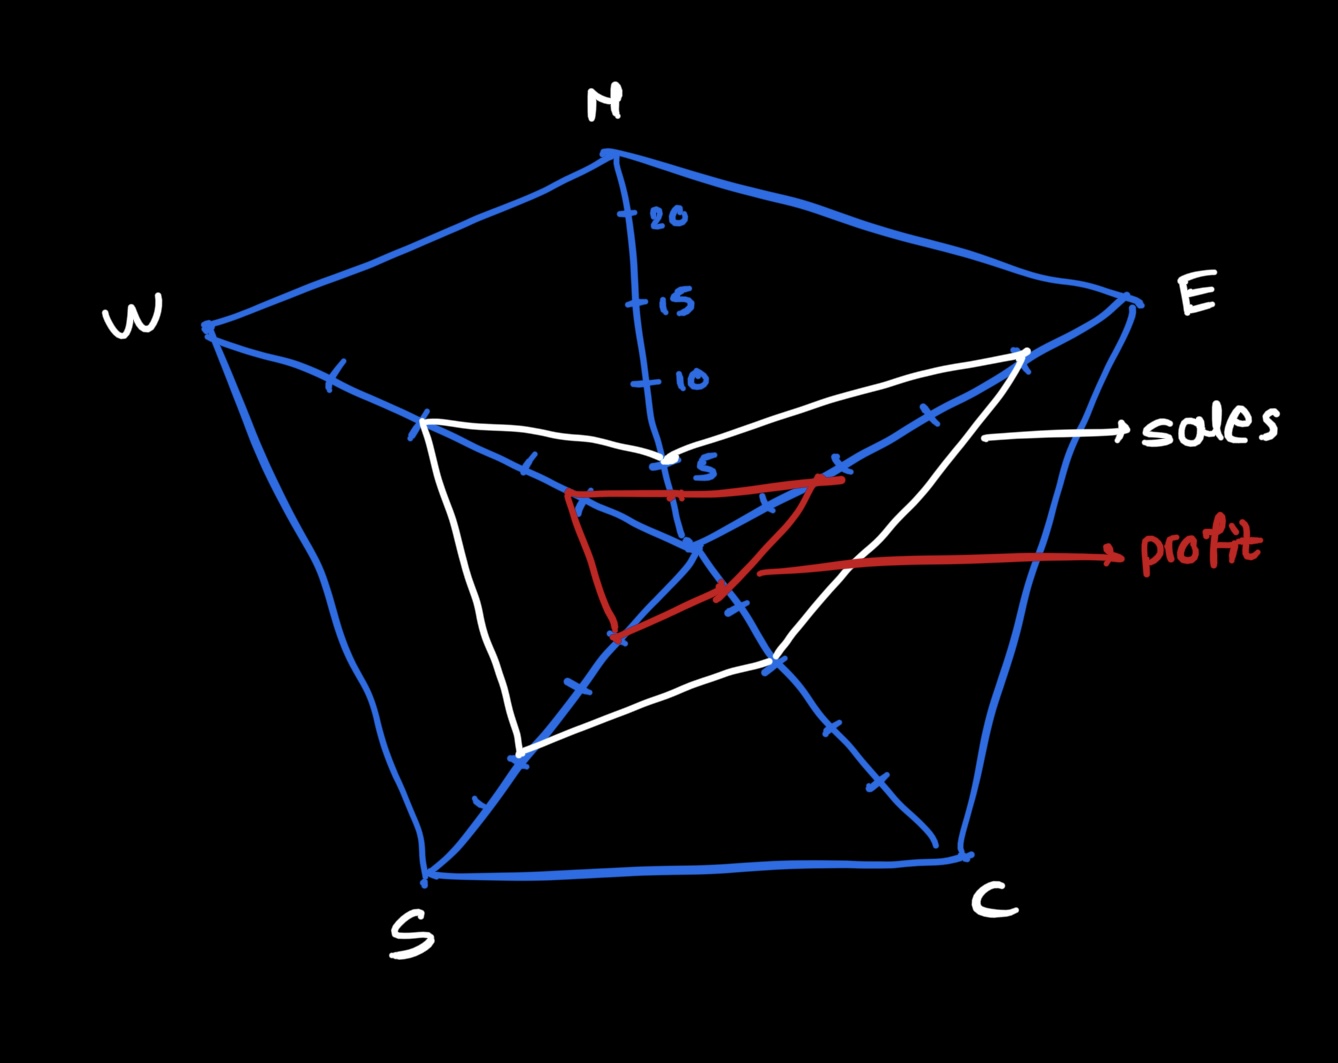 N
20
15
10
5
E
W
sales
profit
S
C